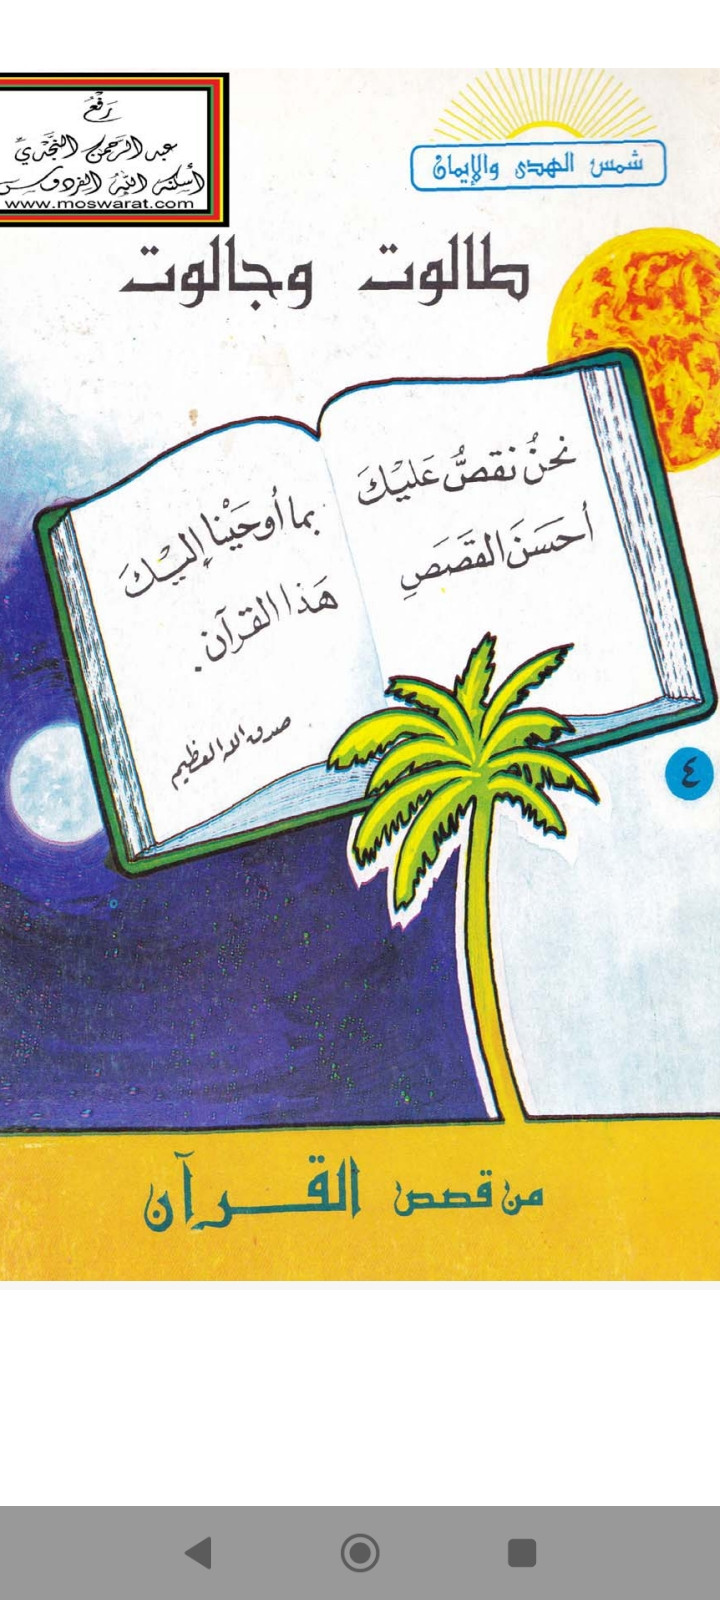 رَفْعُ
عبد الرَّحمن النَّجديِّ
أسكنه الله الفردوس
www.moswarat.com
شمس الهدى والإيمان
طالوت وجالوت
نحنُ نقصُّ عَليْكَ
أحسَنَ القَصَصِ
بما أوحَيْنا إليْكَ
هَذا القرآن.
صدق الله العظيم
٤
من قصص القرآن